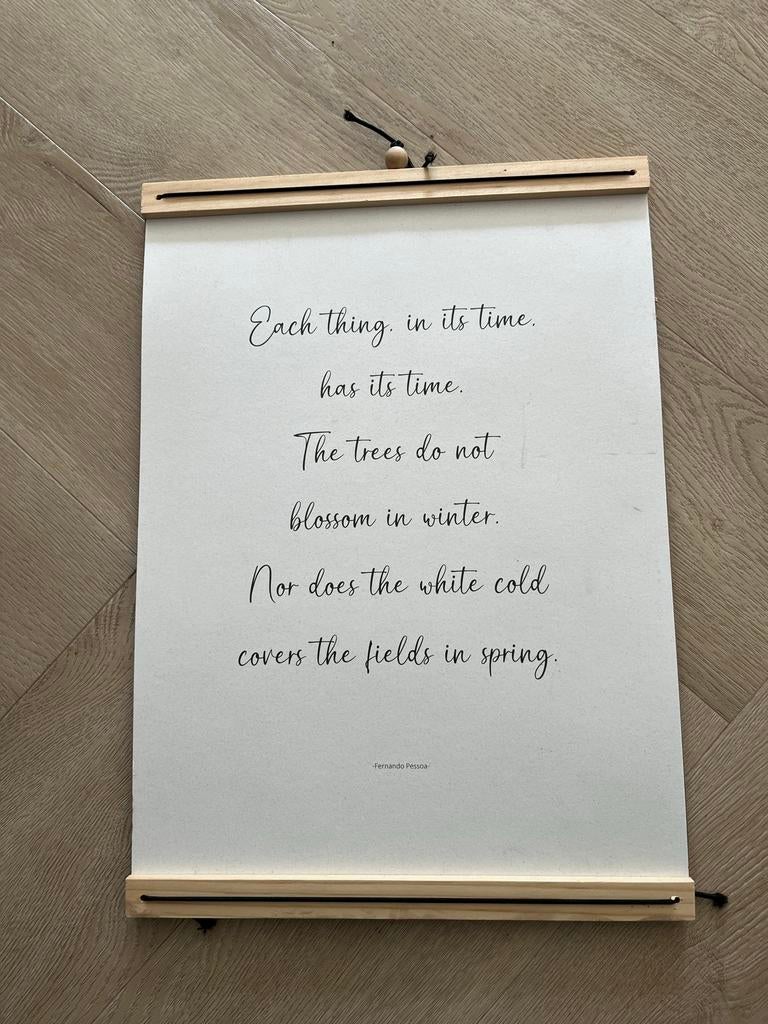 Each thing, in its time,
has its time.
The trees do not
blossom in winter.
Nor does the white cold
covers the fields in spring.
-Fernando Pessoa-